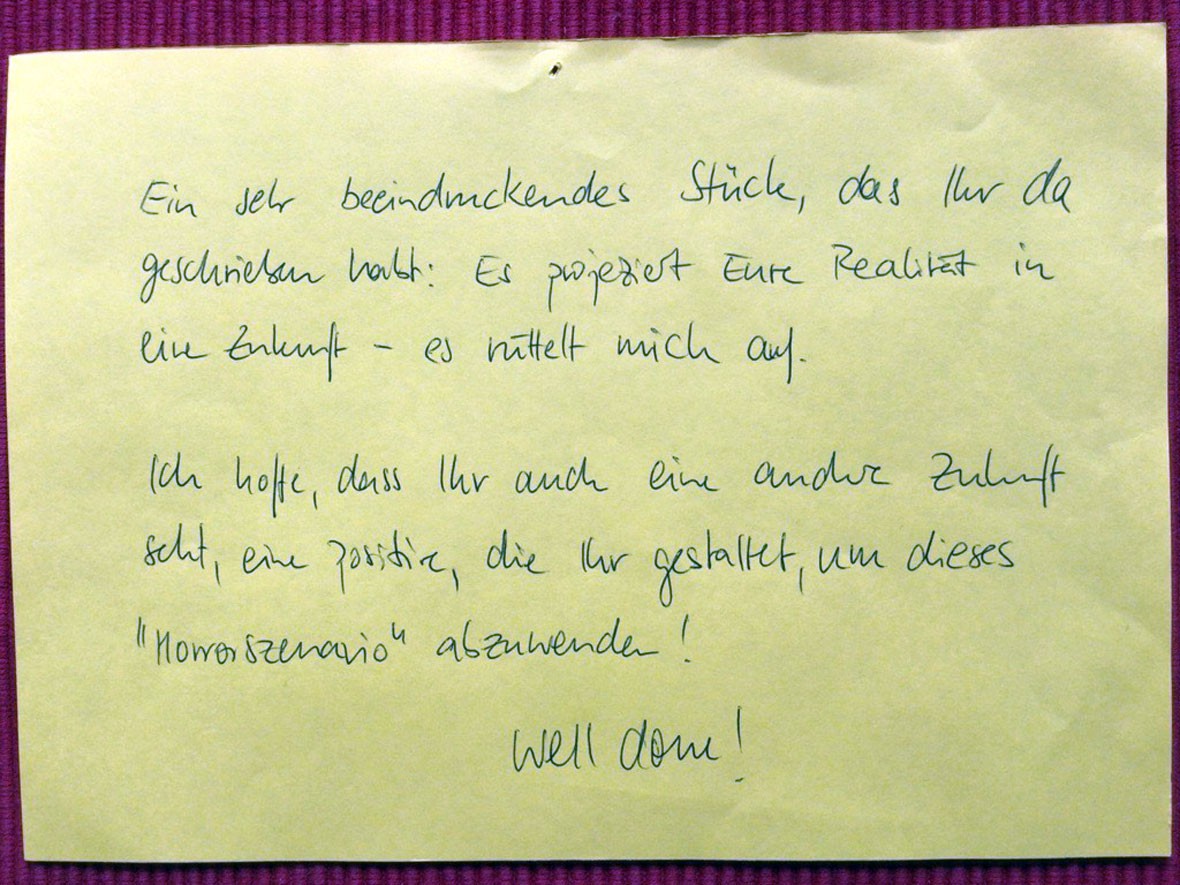 Ein sehr beeindruckendes Stück, das Ihr da
geschrieben habt: Es projeziert Eure Realität in
eine Zukunft – es rüttelt mich auf.
Ich hoffe, dass Ihr auch eine andere Zukunft
seht, eine positive, die Ihr gestaltet, um dieses
"Horrorszenario" abzuwenden!
Well done!